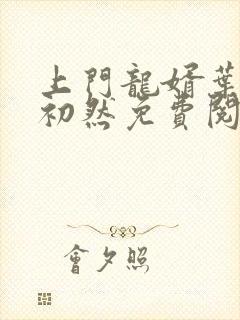 上門龍婿葉
初然免費閱
會夕照